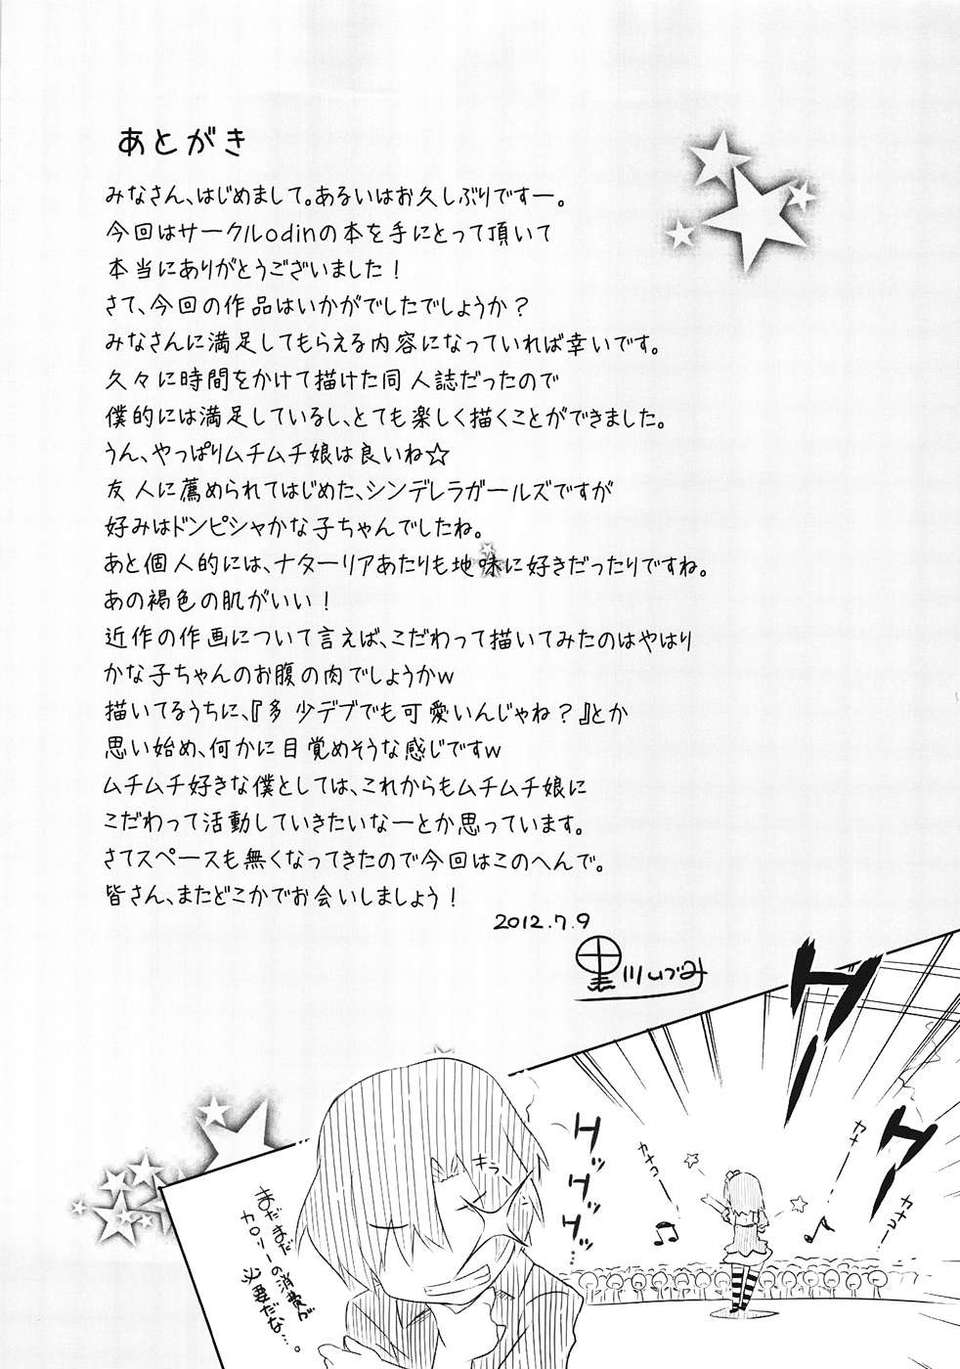 あとがき
みなさん、はじめまして。あるいはお久しぶりですー。
今回はサークルodinの本を手にとって頂いて
本当にありがとうございました！
さて、今回の作品はいかがでしたでしょうか？
みなさんに満足してもらえる内容になっていれば幸いです。
久々に時間をかけて描けた同人誌だったので
僕的には満足しているし、とても楽しく描くことができました。
うん、やっぱりムチムチ娘は良いね☆
友人に薦められてはじめた、シンデレラガールズですが
好みはドンピシャかな子ちゃんでしたね。
あと個人的には、ナターリアあたりも地味に好きだったりですね。
あの褐色の肌がいい！
近作の作画について言えば、こだわって描いてみたのはやはり
かな子ちゃんのお腹の肉でしょうかw
描いてるうちに、『多少デブでも可愛いんじゃね？』とか
思い始め、何かに目覚めそうな感じですw
ムチムチ好きな僕としては、これからもムチムチ娘に
こだわって活動していきたいなーとか思っています。
さてスペースも無くなってきたので今回はこのへんで。
皆さん、またどこかでお会いしましょう！
2012.7.9
黒川いづみ
カナコー
カナー
カナコー
キラーン
まだまだ
カロリーの消費が
必要だな…。